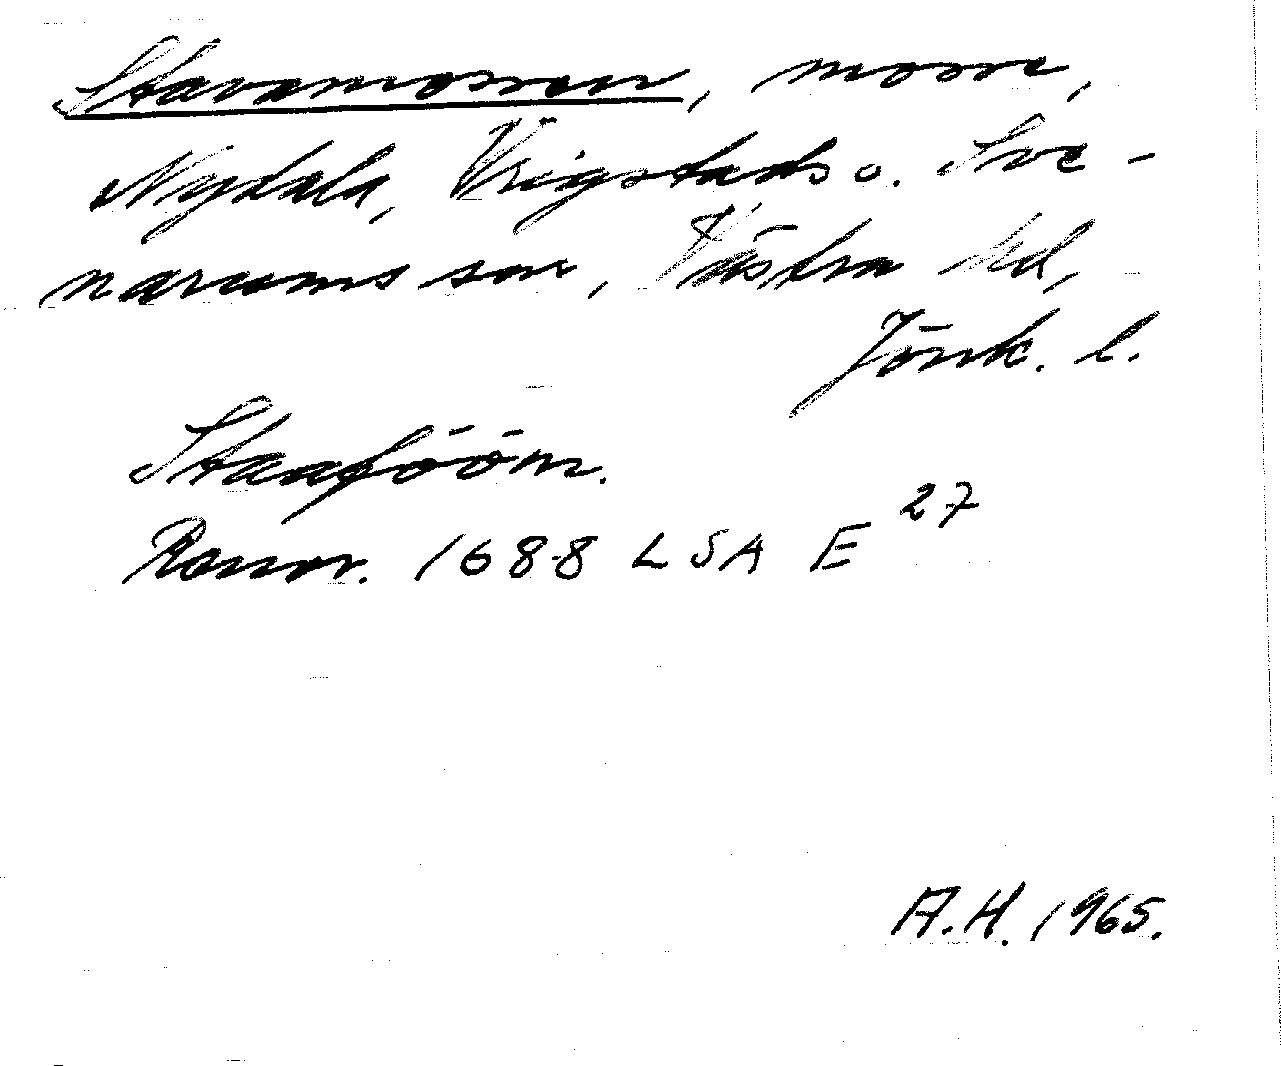 Stavamossen, mosse,
Nydala, Vrigstads o. Sve-
narums snr, Västra hd,
Jönk. l.
Ranns. 1688 LSA E 27
A.H. 1965.